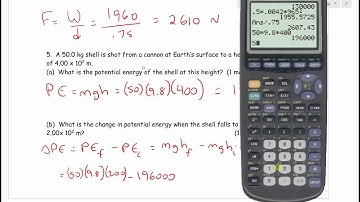 F = W/d = 1960/.75 = 2610 N
5. A 50.0 kg shell is shot from a cannon at Earth's surface to a he
of 4.00 x 10² m.
(a) What is the potential energy of the shell at this height? (1 m
PE = mgh = (50)(9.8)(400) = 1
(b) What is the change in potential energy when the shell falls to
2.00x 10² m? (1
ΔPE = PEf - PEi = mghf - mghi
= (50)(9.8)(200) - 196000
130000
.5*.0042*965²
1955.5725
Ans/.75
2607.43
50*9.8*400
196000
5